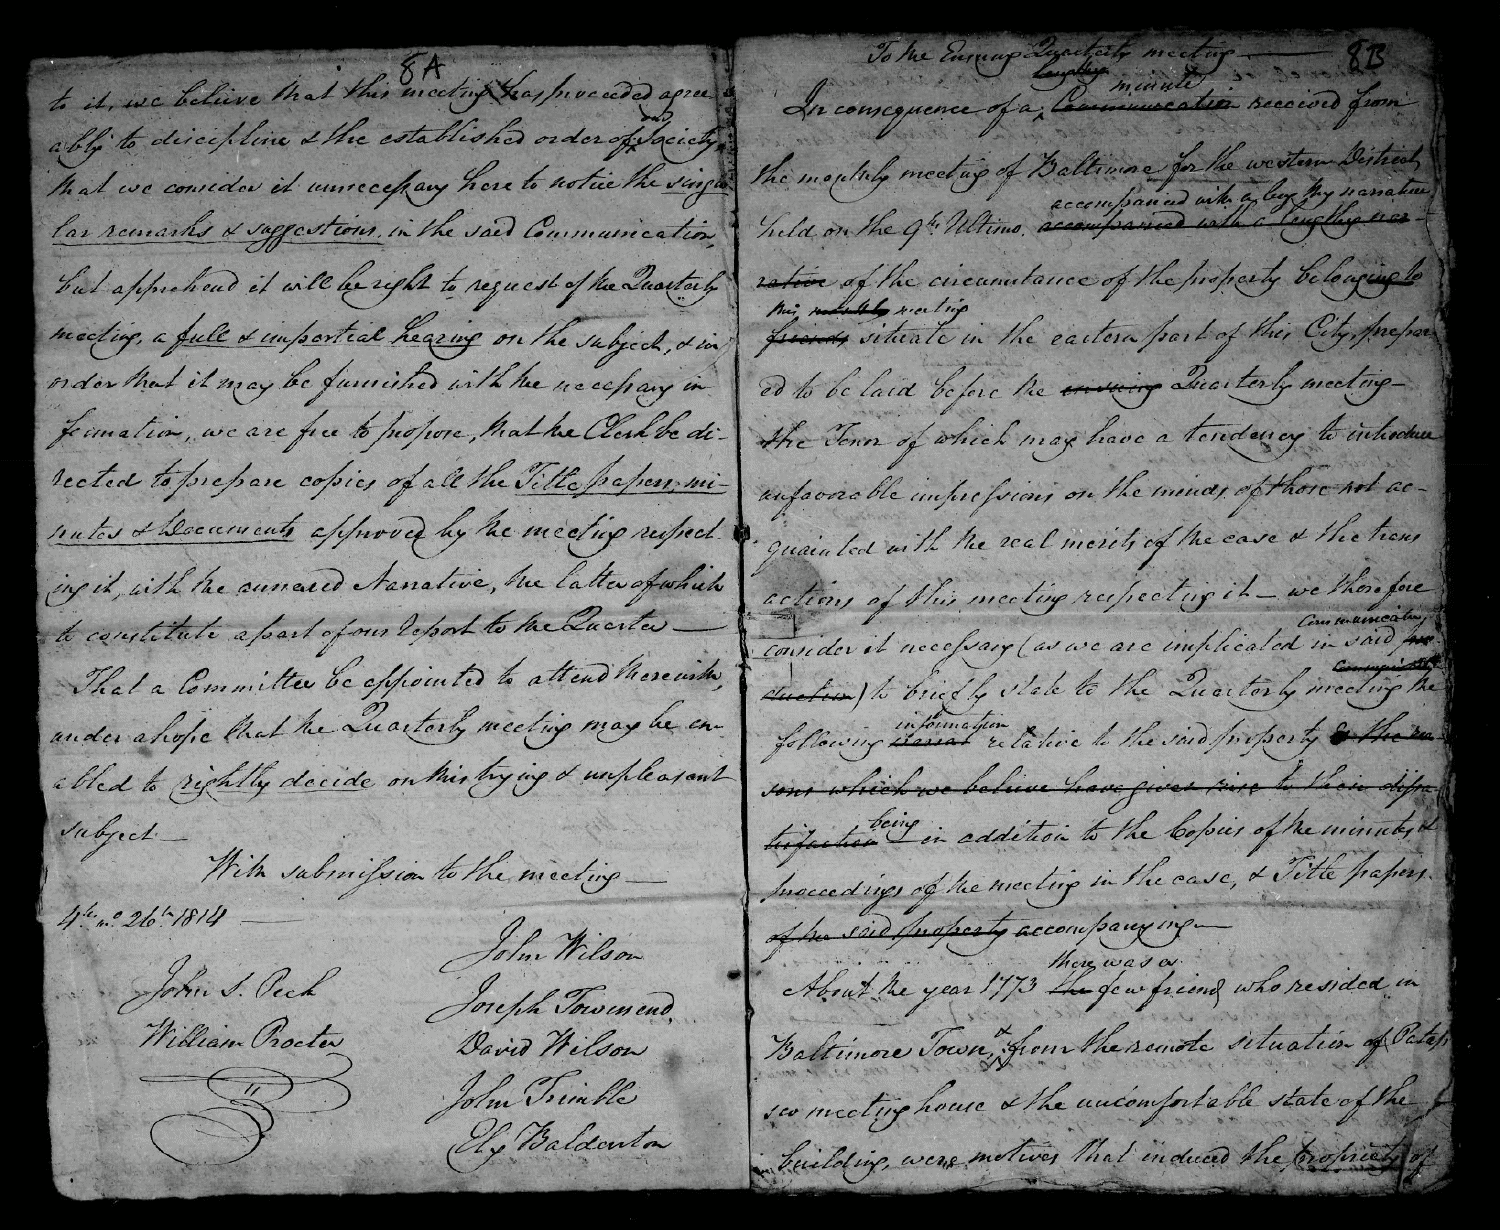 8A
to it, we believe that this meeting has proceeded agree
ably to discipline & the established order of our Society,
that we consider it unnecessary here to notice the singu
lar remarks & suggestions, in the said Communication,
but apprehend it will be right to request of the Quarterly
meeting, a full & impartial hearing on the subject, & in
order that it may be furnished with the necessary in
formation, we are free to propose, that the Clerk be di-
rected to prepare copies of all the Title papers, mi-
nutes & Documents approved by the meeting respect
ing it, with the annexed Narrative, the latter of which
to constitute a part of our Report to the Quarter —
That a Committee be appointed to attend therewith,
under a hope that the Quarterly meeting may be en-
abled to rightly decide on this trying & unpleasant
subject —
With submission to the meeting —
4th mo 26th 1814 —
John Wilson
John S. Peck
Joseph Townsend,
William Procter
David Wilson
John Trimble
Ely Balderston
8B
To the Ensuing Quarterly meeting —
lengthy
minute
In consequence of a Communication received from
the monthly meeting of Baltimore for the western District,
accompanied with a lengthy narrative
held on the 9th Ultimo, accompanied with a lengthy nar-
rative of the circumstance of the property belonging to
this monthly meeting
friends situate in the eastern part of this City, prepar
ed to be laid before the ensuing Quarterly meeting —
the Tenor of which may have a tendency to introduce
unfavorable impressions on the minds of those not ac-
quainted with the real merits of the case & the trans
actions of this meeting respecting it — we therefore
Communication
consider it necessary (as we are implicated in said
duction) to briefly state to the Quarterly meeting the
information
following narrat relative to the said property & the rea
sons which we believe have given rise to their dissa
being
tisfaction in addition to the Copies of the minutes &
proceedings of the meeting in the case, & Title papers
of the said property accompanying —
there was a
About the year 1773 the few friends who resided in
Baltimore Town, & from the remote situation of Pataps
co meeting house & the uncomfortable state of the
building, were motives that induced the propriety of